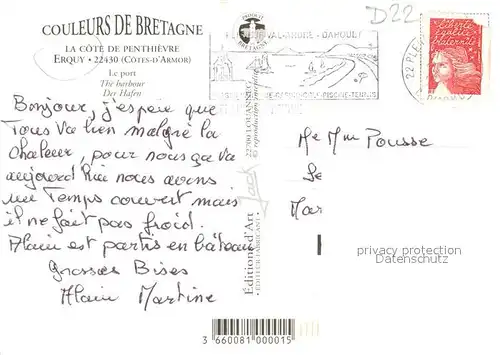 COULEURS DE BRETAGNE
LA CÔTE DE PENTHIÈVRE
ERQUY • 22430 (CÔTES-D'ARMOR)
Le port
The harbour
Der Hafen
Bonjour, j'espère que
Tous va bien malgré la
chaleur, pour nous ça va
aujourd hui nous avons
un Temps couvert mais
il ne fait pas froid.
Alain est partis en bâteau
Grosses Bises
Alain Martine
PRODUIT
BRETAGNE
VAL-ANDRÉ - DAHOUET
PISCINE-TENNIS
22700 LOUANNEC
© reproduction interdite
Jack
Editions d'Art
• ÉDITEUR-FABRICANT •
D22
22 PLE
Liberté
égalité
fraternité
Me Mme Pousse
Se
Mar
privacy protection
Datenschutz
3 660081 000015